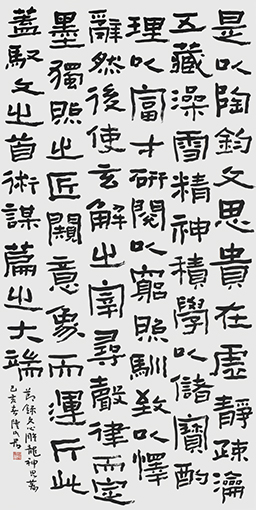 是以陶鈞文思貴在虛靜疏瀹
五藏澡雪精神積學以儲寶酌
理以富才研閱以窮照馴致以懌
辭然後使玄解之宰尋聲律而定
墨獨照之匠闚意象而運斤此
蓋馭文之首術謀篇之大端
節錄文心雕龍神思篇
己亥春